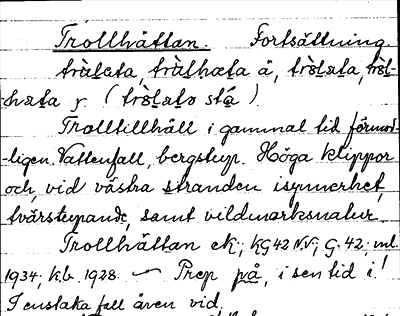 Trollhättan. Fortsättning.
tràlata, tràlhæta å, tròlata, tròl-
hæta y (tròlatə stá).
Trolltillhåll i gammal tid förmod-
ligen. Vattenfall, bergstup. Höga klippor
och, vid västra stranden isynnerhet,
tvärstupande, samt vildmarksnatur.
Trollhättan ek; KG 42 N.V; G. 42; ml.
1934; k.b. 1928. — Prep på, i sen tid i!
I enstaka fall även vid.